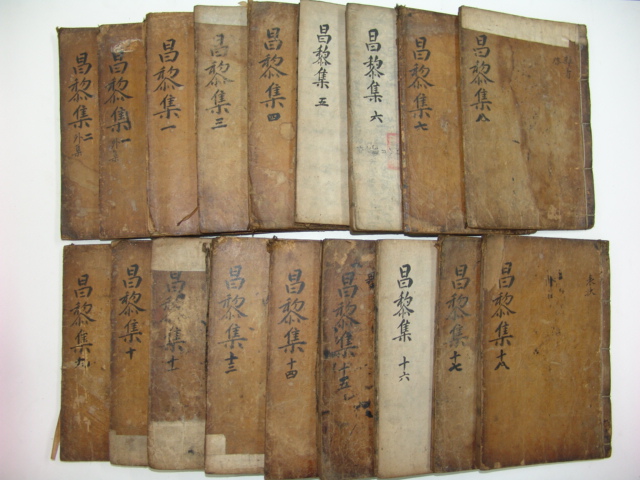 昌黎集 二
外集
昌黎集 一
昌黎集 一
昌黎集 三
昌黎集 四
昌黎集 五
昌黎集 六
昌黎集 七
昌黎集 八
昌黎集 九
昌黎集 十
昌黎集 十一
昌黎集 十三
昌黎集 十四
昌黎集 十五
昌黎集 十六
昌黎集 十七
昌黎集 十八